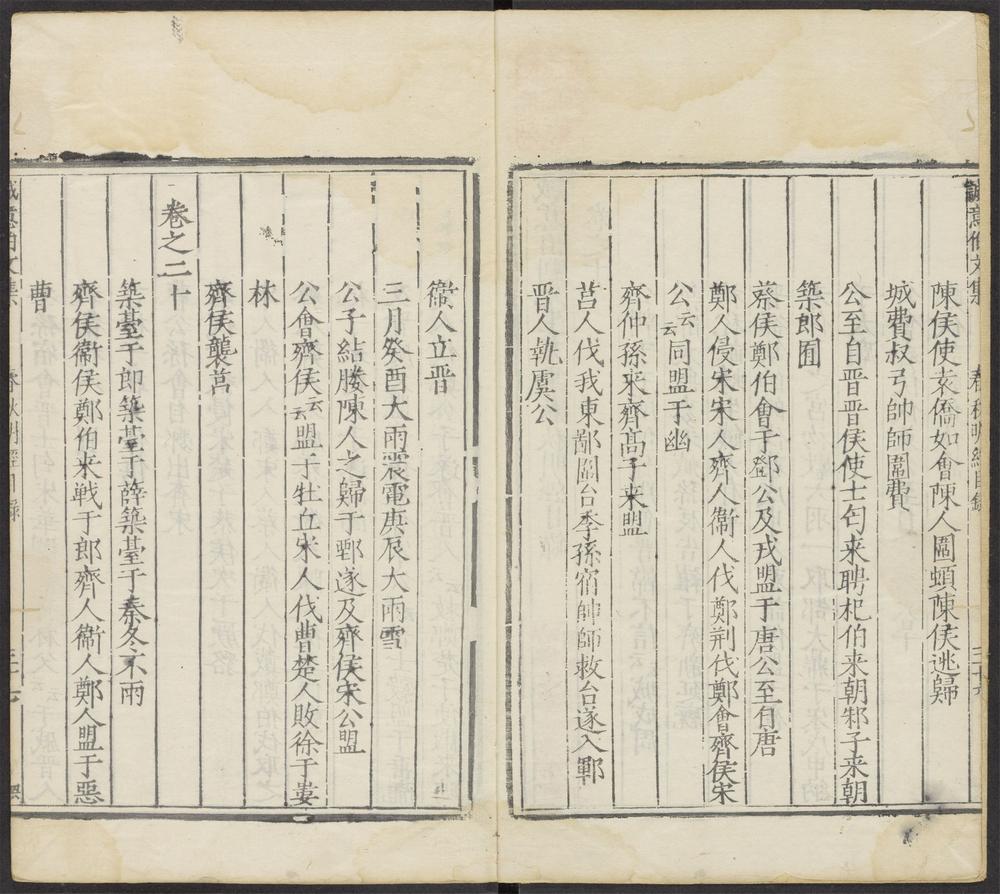 誠意伯文集 春秋明經目錄 三十六
陳侯使袁僑如會陳人圍頓陳侯逃歸
城費叔弓帥師圍費
公至自晉晉侯使士匄來聘杞伯來朝邾子來朝
築郎囿
蔡侯鄭伯會于鄧公及戎盟于唐公至自唐
鄭人侵宋宋人齊人衞人伐鄭荆伐鄭會齊侯宋
公云云同盟于幽
齊仲孫来齊髙子来盟
莒人伐我東鄙圍台季孫宿帥師救台遂入鄆
晉人執虞公
衞人立晉
三月癸酉大雨震電庚辰大雨雪
公子結媵陳人之歸于鄄遂及齊侯宋公盟
公會齊侯云云盟于牡丘宋人伐曹楚人敗徐于婁
林
齊侯襲莒
卷之二十
築臺于郎築臺于薛築臺于秦冬不雨
齊侯衞侯鄭伯来戰于郎齊人衞人鄭人盟于惡
曹
誠意伯文集 春秋明經目錄 三十七